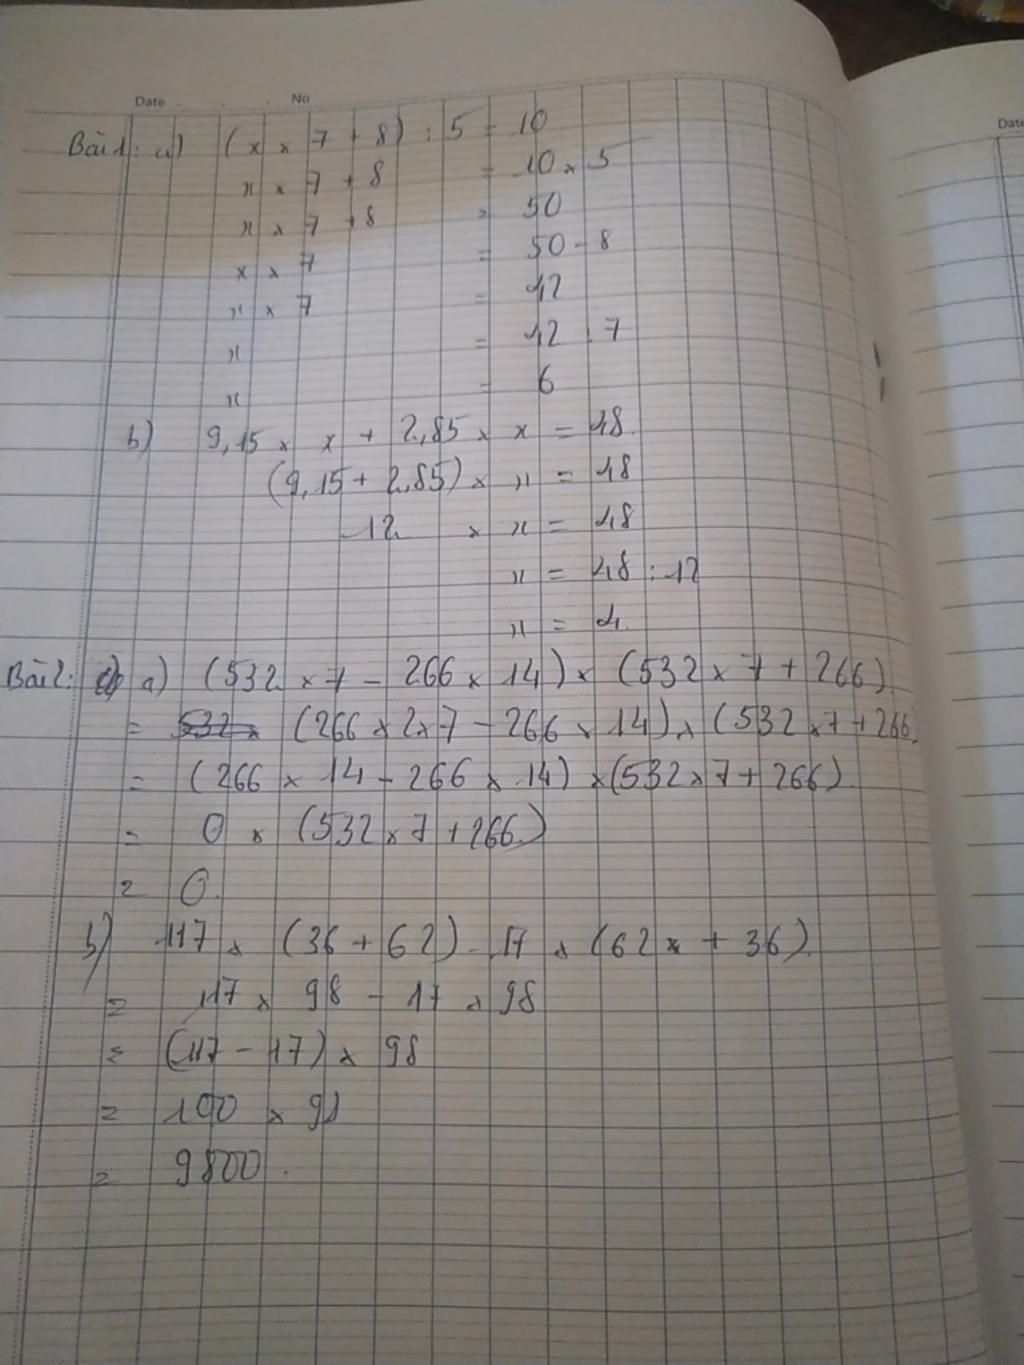 Date No
Bài 1: a) (x × 7 + 8) : 5 = 10
x × 7 + 8 = 10 × 5
x × 7 + 8 = 50
x × 7 = 50 - 8
x × 7 = 42
x = 42 : 7
x = 6
b) 9,15 × x + 2,85 × x = 48
(9,15 + 2,85) × x = 48
12 × x = 48
x = 48 : 12
x = 4
Bài 2: a) (532 × 7 - 266 × 14) × (532 × 7 + 266)
= (266 × 2 × 7 - 266 × 14) × (532 × 7 + 266)
= (266 × 14 - 266 × 14) × (532 × 7 + 266)
= 0 × (532 × 7 + 266)
= 0.
b) 117 × (36 + 62) - 17 × (62 + 36)
= 117 × 98 - 17 × 98
= (117 - 17) × 98
= 100 × 98
= 9800.
Date